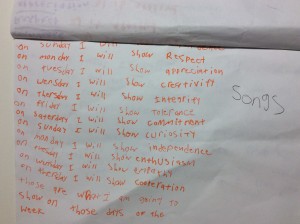 on sunday I will show
on monday I will show Respect
on tuesday I will show appreciation
on wensday I will show creativity
on thersday I will show Integrity
on friday I will show tolerance
on saterday I will show commitment
on sunday I will show curiosity
on monday I will show independence
on tuesday I will show enthusiasm
on wensday I will show empathy
on thersday I will show cooperation
those are what I am going to
show on those days of the
week
Songs